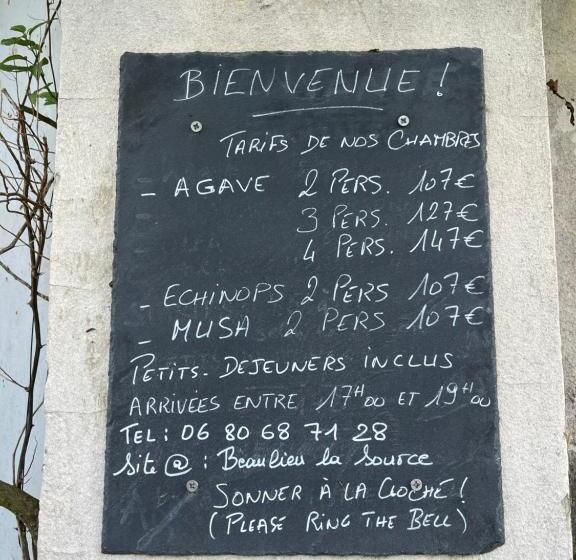 BIENVENUE !
TARIFS DE NOS CHAMBRES
- AGAVE 2 PERS. 107€
3 PERS. 127€
4 PERS. 147€
- ECHINOPS 2 PERS 107€
- MUSA 2 PERS 107€
PETITS-DEJEUNERS INCLUS
ARRIVÉES ENTRE 17H00 ET 19H00
TEL : 06 80 68 71 28
Site @ : Beaulieu la Source
SONNER À LA CLOCHE !
(PLEASE RING THE BELL)